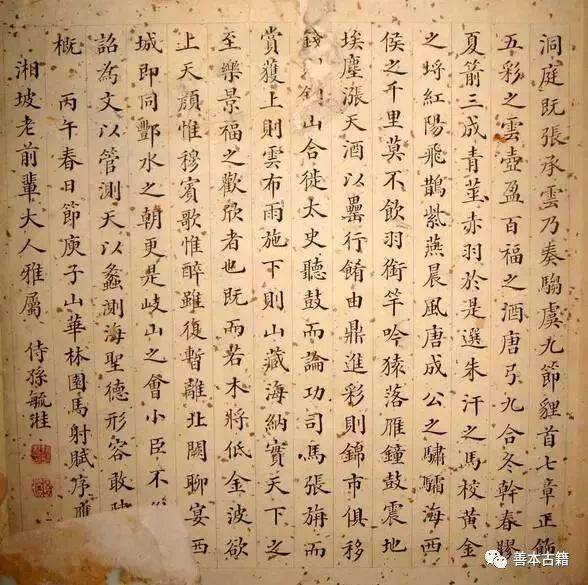 洞庭既張承雲乃奏騶虞九節貍首七章正飾
五彩之雲壺盈百福之酒唐弓九合冬幹春膠
夏箭三成青莖赤羽於是選朱汗之馬校黃金
之埒紅陽飛鵲紫燕晨風唐成公之驌驦海西
侯之千里莫不飲羽銜竿吟猿落雁鐘鼓震地
埃塵漲天酒以罍行餚由鼎進彩則錦市俱移
錢山合徙太史聽鼓而論功司馬張旃而
賞獲上則雲布雨施下則山藏海納實天下之
至樂景福之歡欣者也既而若木將低金波欲
上天顏惟穆賓歌惟醉雖復暫離北闕聊宴西
城即同酆水之朝更是岐山之會小臣不
詔為文以管測天以蠡測海聖德形容敢
概 丙午春日節庾子山華林園馬射賦序應
湘坡老前輩大人雅屬 侍孫毓溎
善本古籍